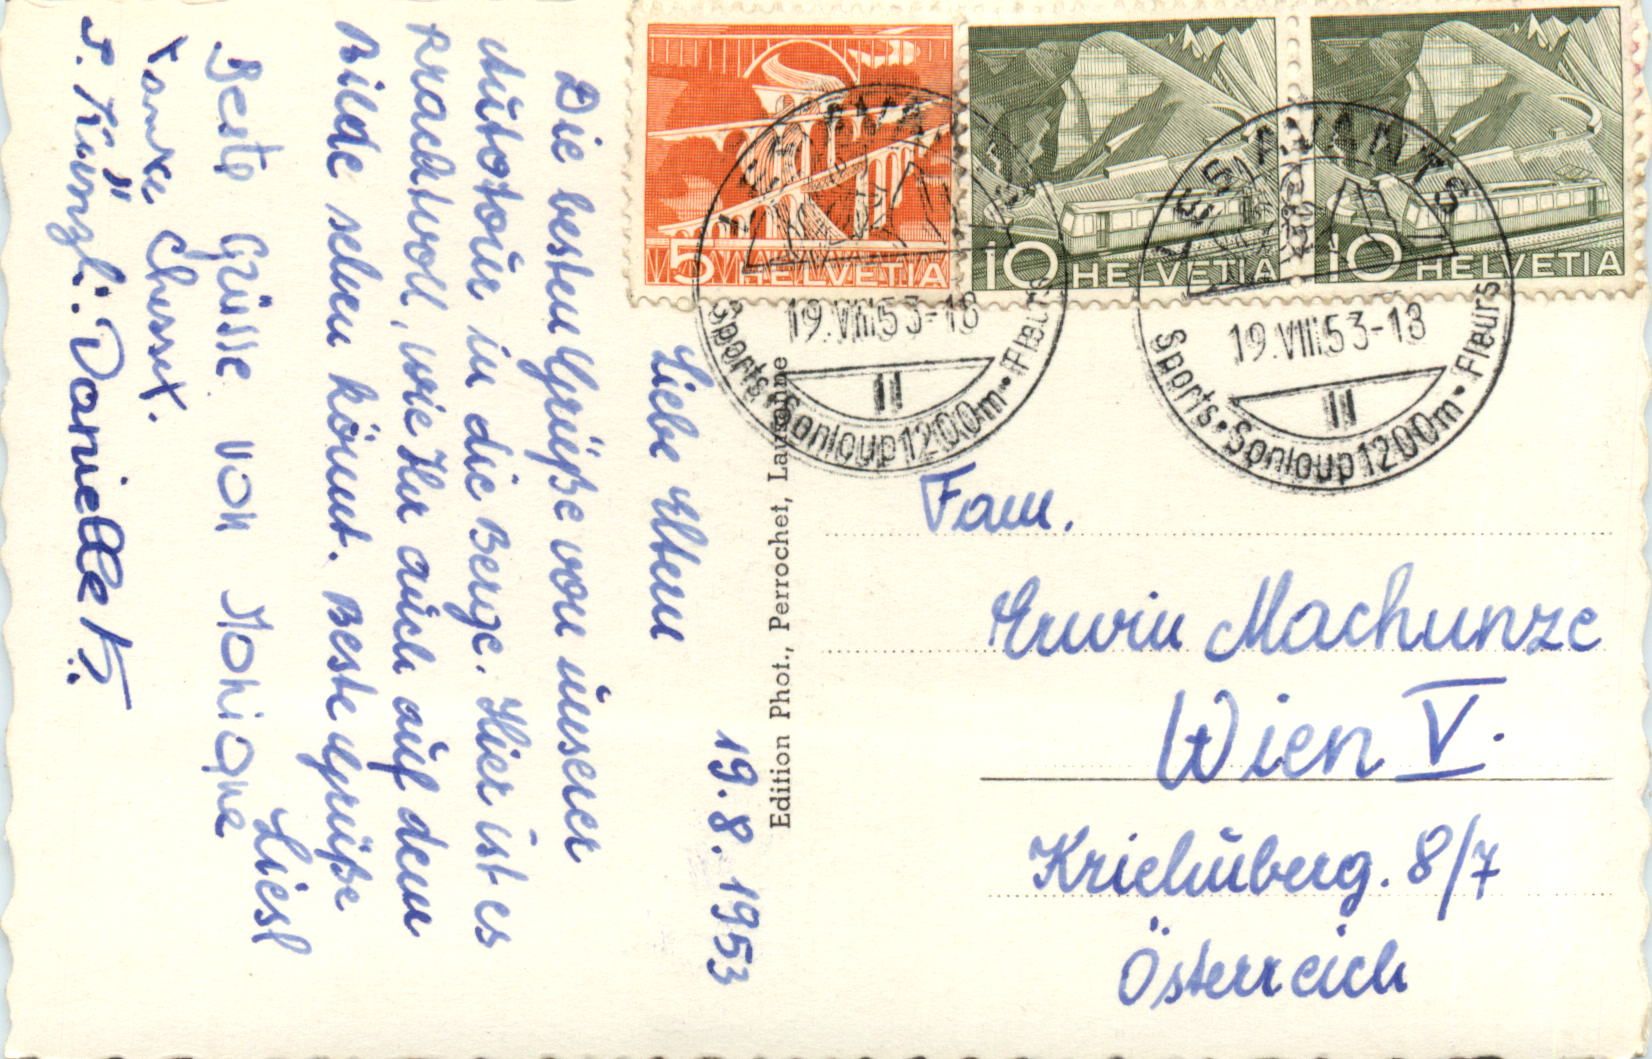 19.8.1953
Liebe Eltern
Die besten Grüße von unserer
Autotour in die Berge. Hier ist es
Prachtvoll, wie Ihr auch auf dem
Bilde sehen könnt. Beste Grüße
Liesl
Beste Grüsse von Monique
Chessex.
Künzli. Danielle K.
Edition Phot., Perrochet, Lausanne
5 HELVETIA
10 HELVETIA
10 HELVETIA
LES AVANTS
19.VIII.53-18
Sports • Sonloup 1200m • Fleurs
LES AVANTS
19.VIII.53-18
Sports • Sonloup 1200m • Fleurs
Fam.
Erwin Machunze
Wien V.
Kriehuberg. 8/7
Österreich